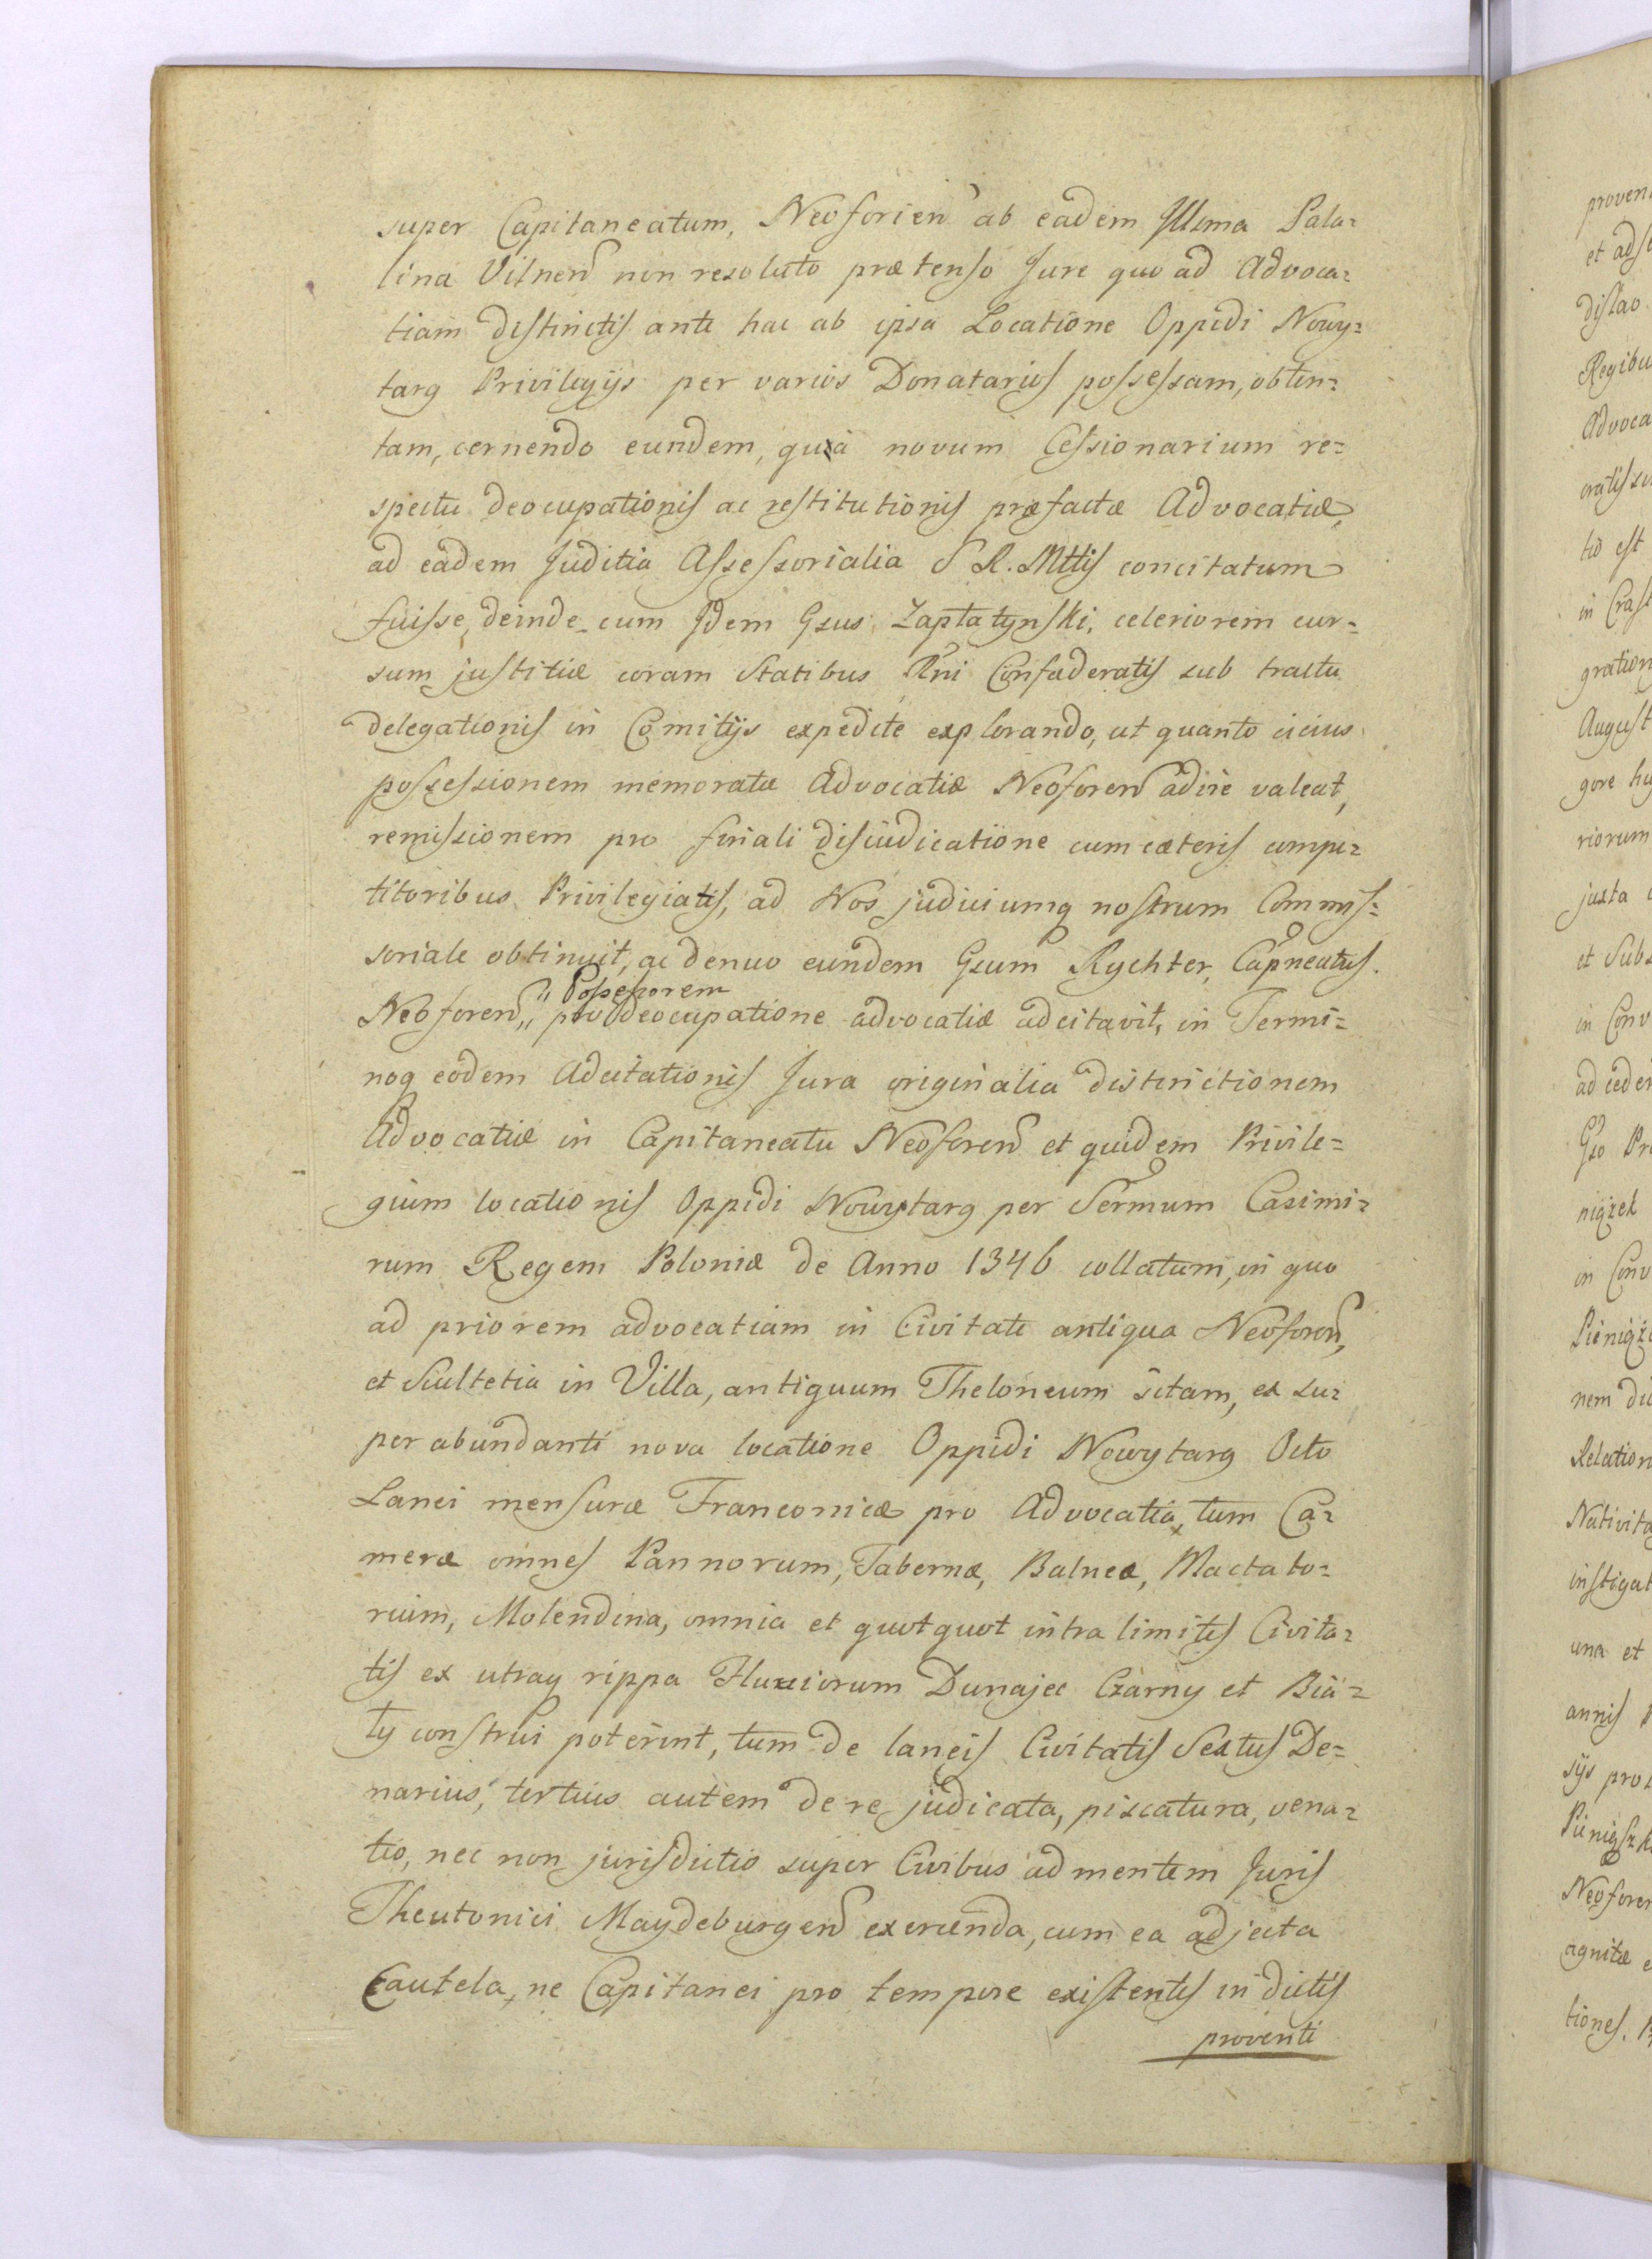 super Capitaneatum, Neoforien ab eadem Illma Pala=
tina Vilnen non resoluto prætenso Jure quo ad Advoca=
tiam distinctis ante hac ab ipsa Locatione Oppidi Nowy=
targ Privilegijs per varios Donatarios possessam, obten=
tam, cernendo eundem, quà novum Cessionarium re=
spectu deocupationis ac restitutionis præfatæ Advocatiæ,
ad eadem Juditia Assessorialia S R. Mttis concitatum
fuisse, deinde cum Idem Gsus Zaptatynski, celeriorem cur=
sum justitiæ coram Statibus Rni Confæderatis sub tractu
delegationis in Comitijs expedite explorando, ut quanto icius
possessionem memoratæ Advocatiæ Neoforen adire valeat,
remissionem pro finali disjudicatione cum cæteris compe=
titoribus Privilegiatis, ad Nos judiciumq nostrum Commis=
soriale obtinuit, ac denuo eundem Gsum Rychter, Capneatus.
Neoforen,, "Possessorem
pro deocupatione advocatiæ adcitavit, in Termi=
noq eodem Adcitationis Jura originalia distinctionem
Advocatiæ in Capitaneatu Neoforen et quidem Privile=
gium locationis Oppidi Nowytarg per Sermum Casimi=
rum Regem Poloniæ de Anno 1346 collatum, in quo
ad priorem advocatiam in Civitate antiqua Neoforen,
et Scultetia in Villa, antiquum Theloneum sitam, ex su=
per abundanti nova locatione Oppidi Nowytarg Octo
Lanei mensuræ Franconicæ pro Advocatia, tum Ca=
meræ omnes Pannorum, Tabernæ, Balneæ, Mactato=
rium, Molendina, omnia et quotquot intra limites Civita=
tis ex utraq rippa Fluviorum Dunajec Czarny et Bia=
ły construi poterint, tum de laneis Civitatis Sextus De=
narius, tertius autem de re judicata, piscatura, vena=
tio, nec non jurisdictio super Civibus ad mentem Juris
Theutonici Maydeburgen exercenda, cum ea adjecta
Cautela, ne Capitanei pro tempore existentes in dictis
proventi